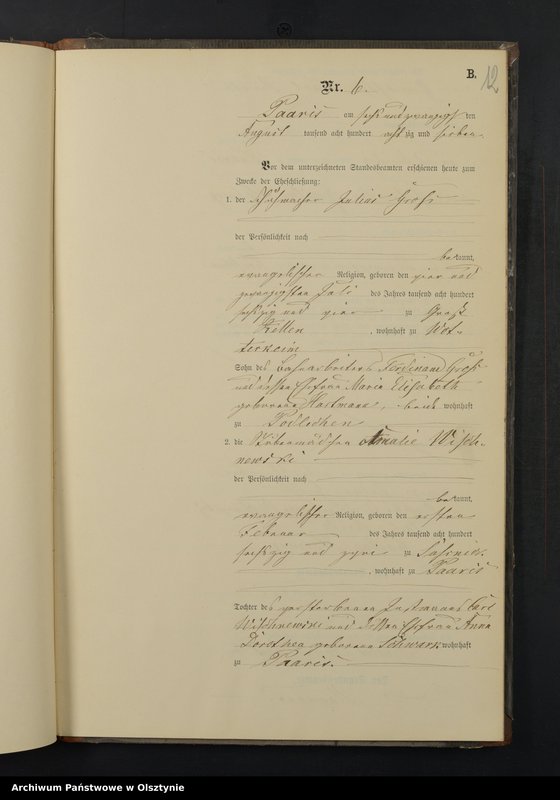 B.
12
Nr. 6.
Paaris am sechs und zwanzigsten
August tausend acht hundert acht zig und sieben
Vor dem unterzeichneten Standesbeamten erschienen heute zum
Zwecke der Eheschließung:
1. der Schuhmacher Julius Groß
der Persönlichkeit nach
bekannt,
evangelischer Religion, geboren den vier und
zwanzigsten Juli des Jahres tausend acht hundert
sechszig und vier zu Groß
, wohnhaft zu
Sohn des Bahnarbeiters Ferdinand Groß
und dessen Ehefrau Maria Elisabeth
geborenen Hartmann, beide wohnhaft
zu Podlechen
2. die Stubenmädchen Amalie Wisch-
newski
der Persönlichkeit nach
bekannt,
evangelischer Religion, geboren den ersten
Februar des Jahres tausend acht hundert
sechszig und zwei zu
, wohnhaft zu Paaris
Tochter des verstorbenen Instmanns Carl
Wischnewski und dessen Ehefrau Anna
Dorothea geborenen Schwarz wohnhaft
zu Paaris.
Archiwum Państwowe w Olsztynie